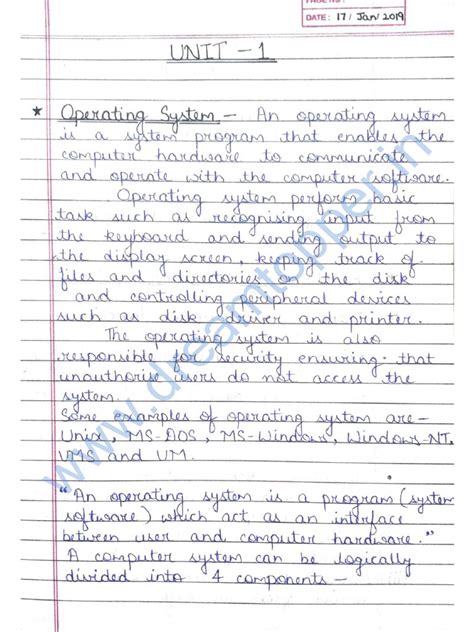 PAGE NO.:
DATE: 17/Jan/2019
UNIT - 1
* Operating System - An operating system
is a system program that enables the
computer hardware to communicate
and operate with the computer software.
Operating system perform basic
task such as recognising input from
the keyboard and sending output to
the display screen, keeping track of
files and directories on the disk
and controlling peripheral devices
such as disk driver and printer.
The operating system is also
responsible for security ensuring that
unauthorise users do not access the
system.
Some examples of operating system are-
Unix, MS-DOS, MS-Windows, Windows-NT,
VMS and VM.
"An operating system is a program (system
software) which act as an interface
between user and computer hardware."
A computer system can be logically
divided into 4 components -
www.dreamtopper.in